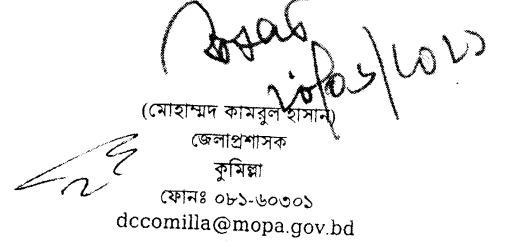 (মোহাম্মদ কামরুল হাসান)
জেলাপ্রশাসক
কুমিল্লা
ফোনঃ ০৮১-৬০৩০১
dccomilla@mopa.gov.bd